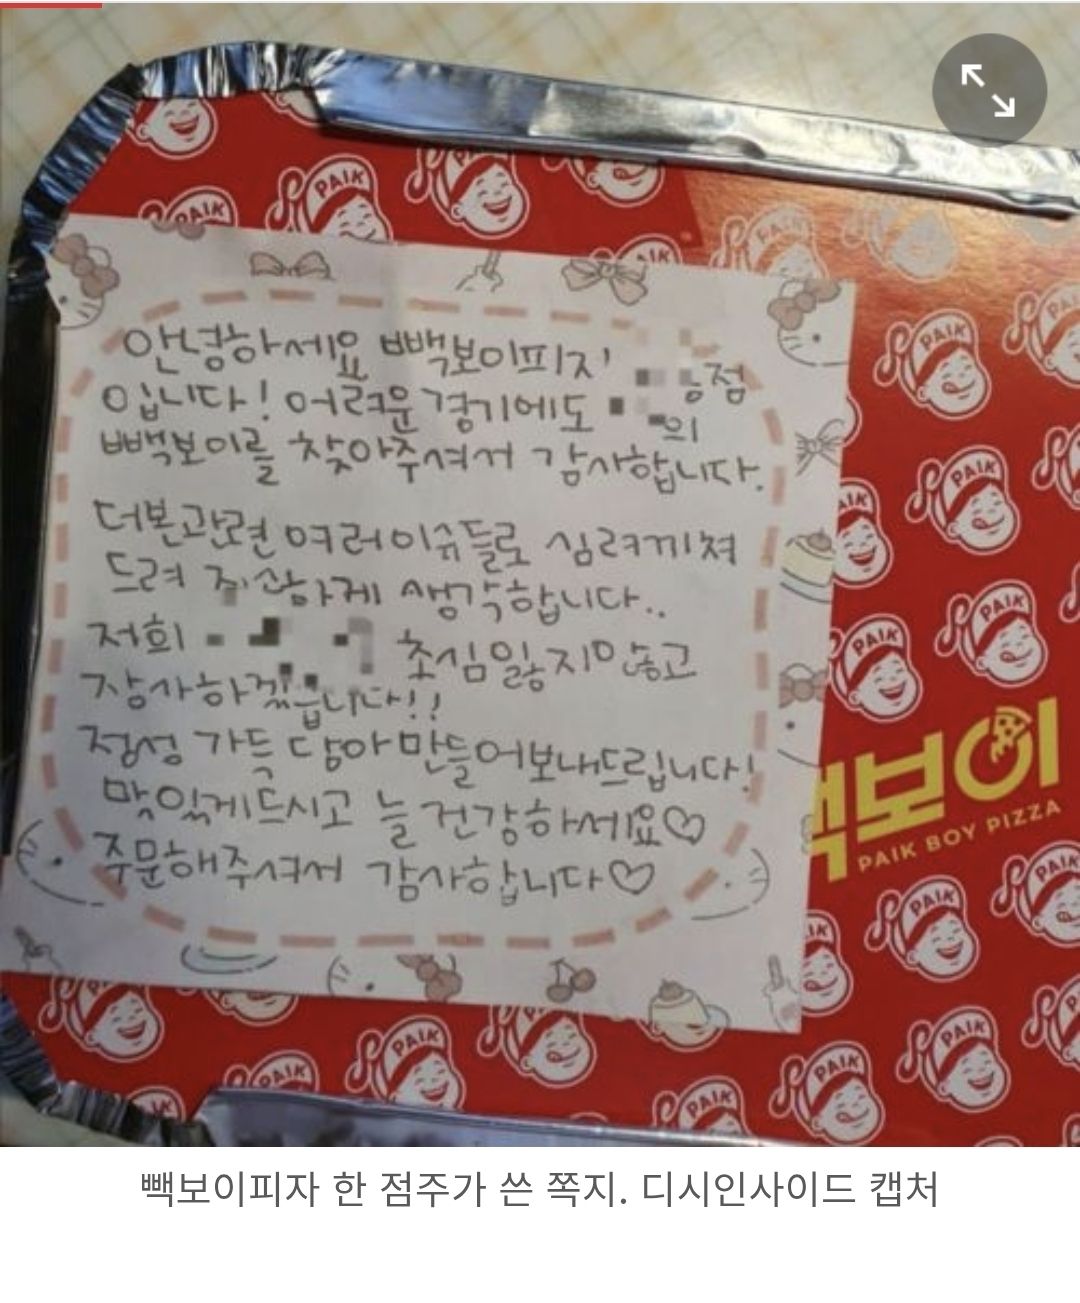 안녕하세요 빽보이피자 점
입니다! 어려운 경기에도 의
빽보이를 찾아주셔서 감사합니다.
더본관련 여러이슈들로 심려끼쳐
드려 죄산하게 생각합니다..
저희 초심잃지않고
장사하겠습니다!!
정성 가득 담아만들어보내드립니다!
맛있게드시고 늘 건강하세요♡
주문해주셔서 감사합니다♡
백보이
PAIK BOY PIZZA
PAIK
빽보이피자 한 점주가 쓴 쪽지. 디시인사이드 캡처